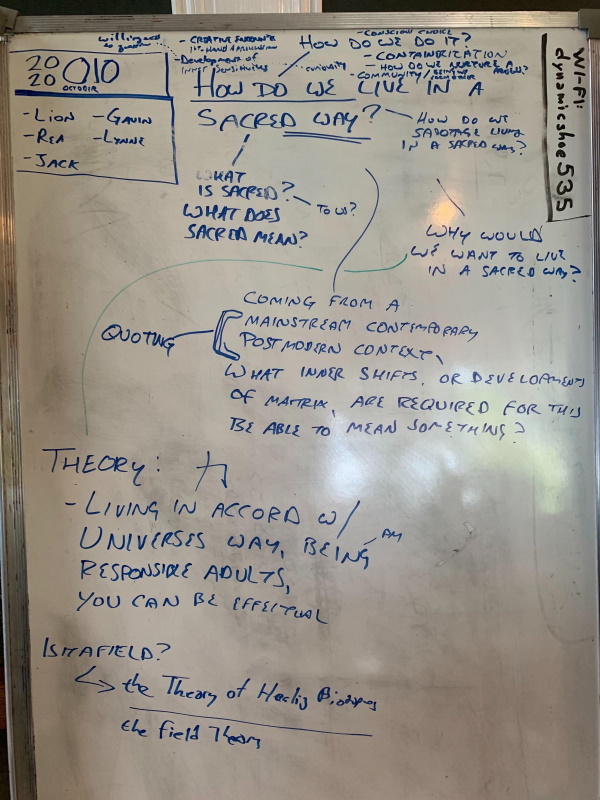 willingness
to
- CREATIVE
- Development of
inner sensitivities
curiosity
- CONSCIOUS CHOICE
HOW DO WE DO IT?
- CONTAINERIZATION
- HOW DO WE NURTURE A
- COMMUNITY/
HOW DO WE LIVE IN A
SACRED WAY?
20
20 010
OCTOBER
- LION - GAVIN
- REA - LYNNE
- JACK
WI-FI:
dynamicshoe535
HOW DO WE
SABOTAGE LIVING
IN A SACRED WAY?
WHAT
IS SACRED?
TO US?
WHAT DOES
SACRED MEAN?
WHY WOULD
WE WANT TO LIVE
IN A SACRED WAY?
COMING FROM A
QUOTING
MAINSTREAM CONTEMPORARY
POSTMODERN CONTEXT,
WHAT INNER SHIFTS, OR DEVELOPMENTS
OF MATTRIX, ARE REQUIRED FOR THIS
BE ABLE TO MEAN SOMETHING?
THEORY:
- LIVING IN ACCORD W/
UNIVERSES WAY, BEING
RESPONSIBLE ADULTS,
YOU CAN BE EFFECTUAL
ISITAFIELD?
the Theory of
the Field Theory